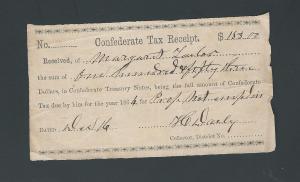 Confederate Tax Receipt.
No. $153.50
Received, of Margaret Taylor
the sum of One hundred & fifty three
Dollars, in Confederate Treasury Notes, being the full amount of Confederate
Tax due by him for the year 1864, for Prop. Not
DATED Dec 16
Collector, District No.